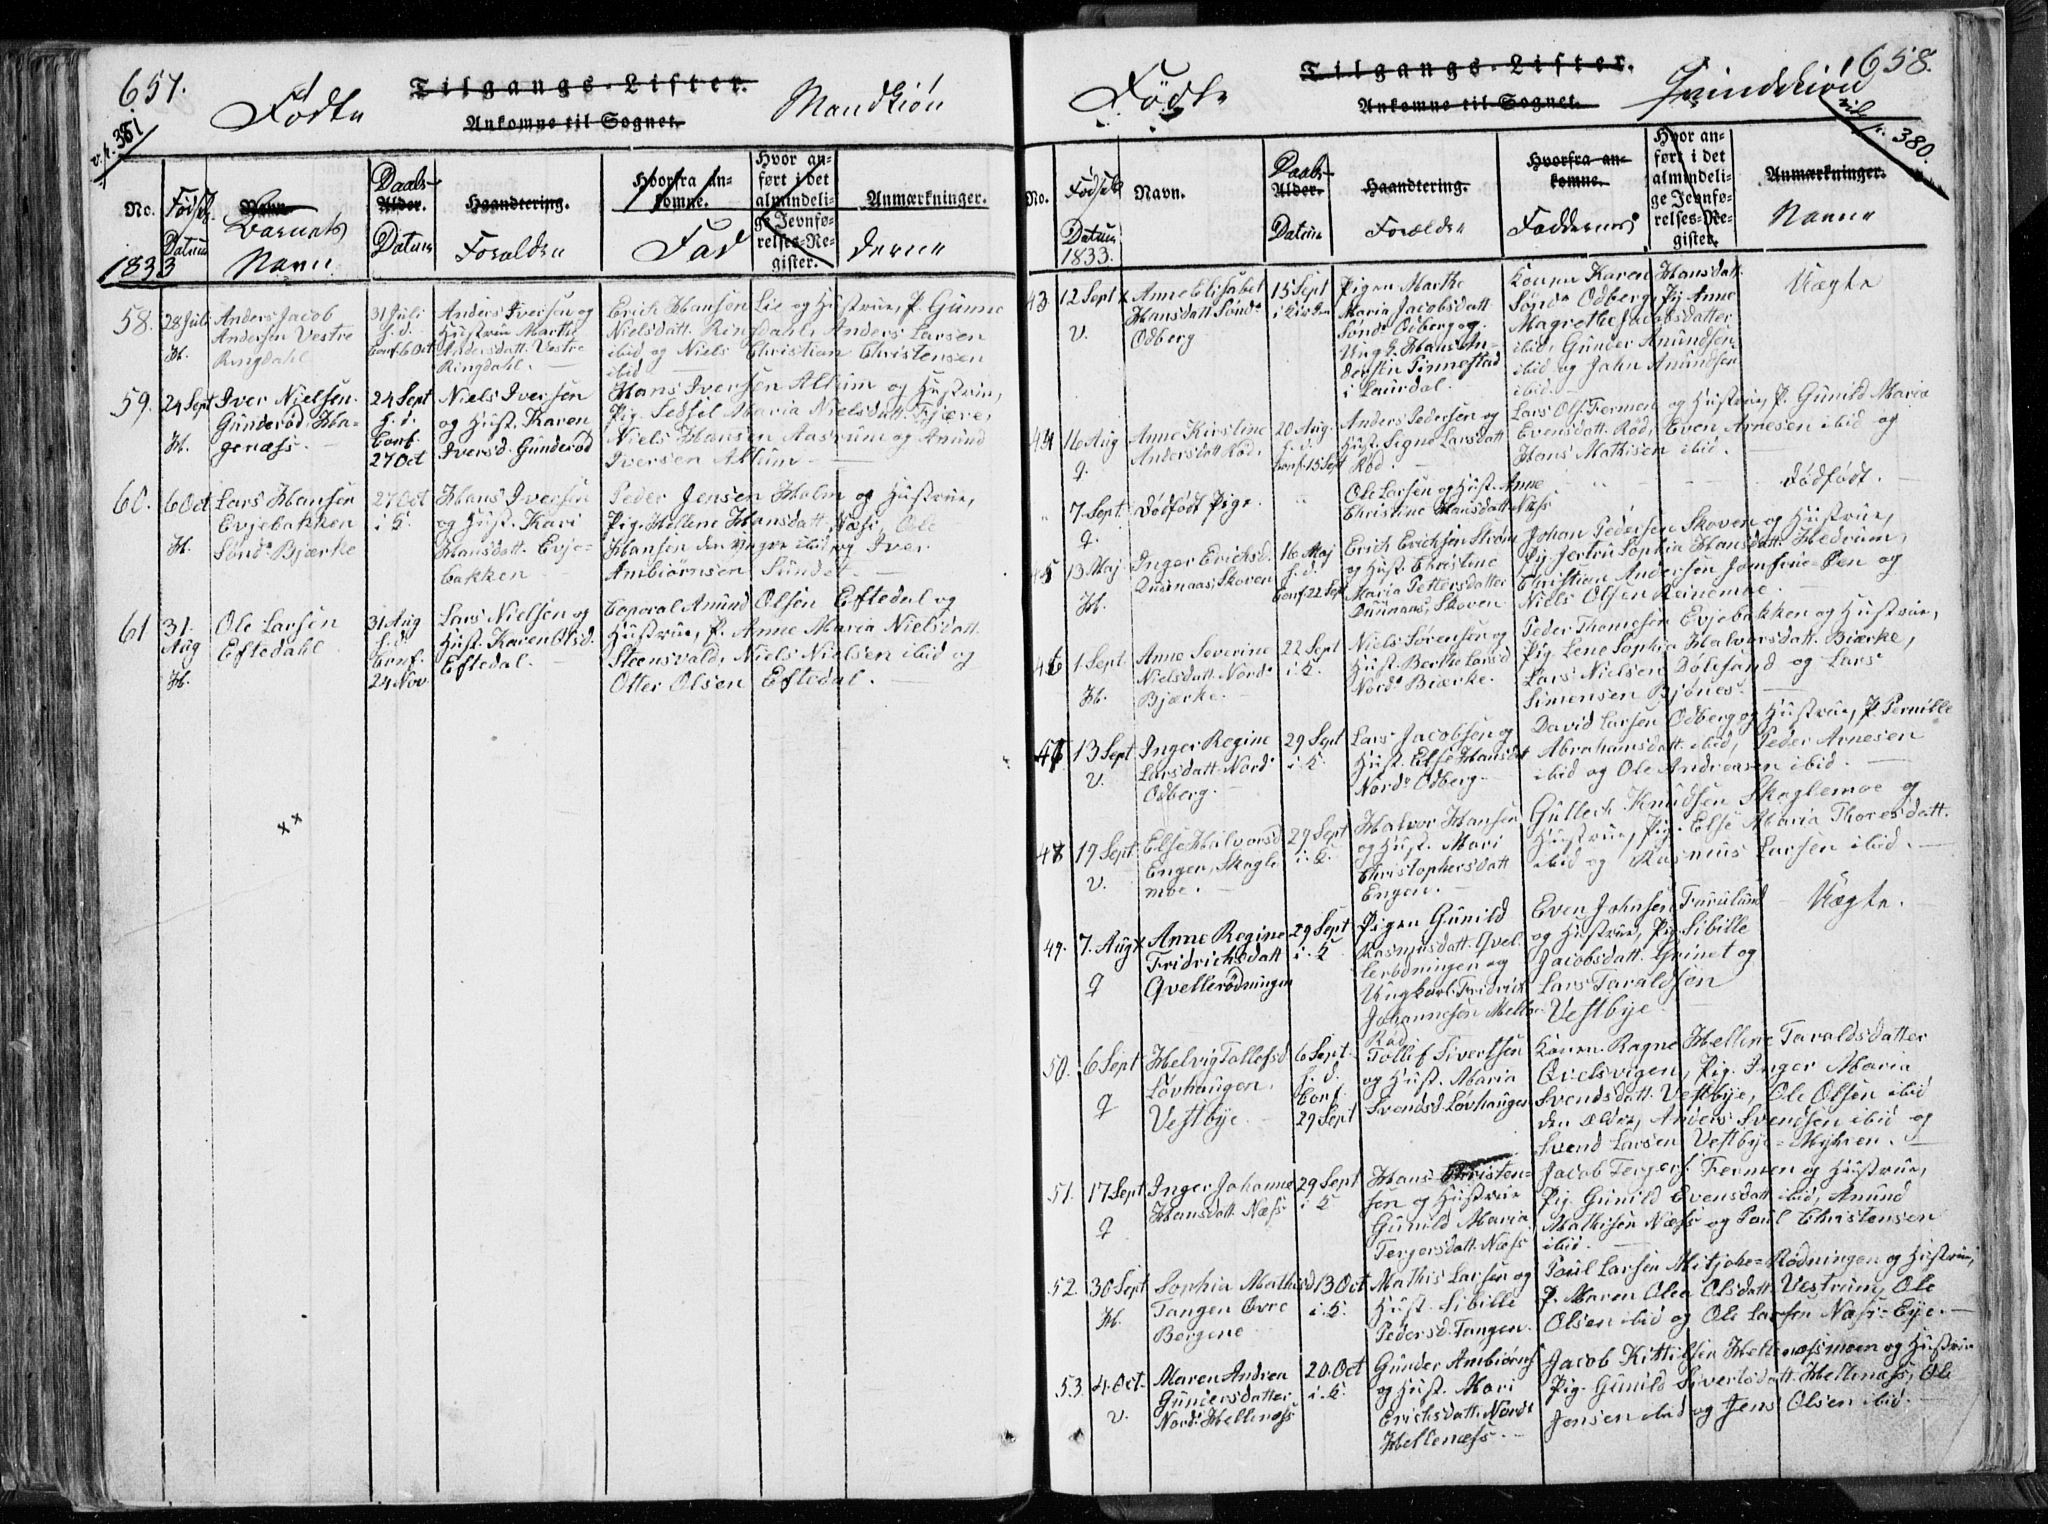 657.
Födte
Tilgangs-Lister.
Ankomne til Sognet.
Mandkiön
v. p. 381
No.
Födsels Datum
1833
Navn
Barnets Navn
Daabs-
Alder.
Datum
Haandtering.
Forældre
Hvorfra an-
komne.
Fad
Hvor an-
ført i det
almindeli-
ge Jevnfø-
relses-Re-
gister.
Anmærkninger.
derne
58.
28 Juli
H.
Anders Jacob
Andersen Vestre
Ringdahl
31 Juli
h. d.
Conf. 6 Oct
Anders Iversen og
Hustrue Marthe
Andersdatt. Vestre
Ringdahl.
Erich Hansen Lie og Hustrue, P. Gunne
Nielsdatt. Ringdahl, Anders Larsen
ibid og Niels Christian Christensen
ibid
59.
24 Sept
H.
Iver Nielsen
Gunderöd, Ha-
genæss.
24 Sept
h. d.
Conf.
27 Oct
Niels Iversen
og Hust. Karen
Iversd. Gunderöd
Hans Iversen Allum og Hustrue,
Pig. Sedsel Maria Nielsdatt. Fjære,
Niels Hansen Aasrum og Amund
Iversen Allum
60.
6 Oct
H.
Lars Hansen
Evjebakken
Sönd. Bjærke
27 Oct
i K.
Hans Iversen
og Hust. Kari
Hansdatt. Evje-
bakken
Peder Jensen Holm og Hustrue,
Pig. Hellene Hansdatt. Næss, Ole
Hansen den Yngre ibid og Iver
Ambiörnsen Sundet.
61
31.
Aug
H.
Ole Larsen
Eftedahl
31 Aug
h. d.
Conf.
24 Nov
Lars Nielsen og
Hust. Karen Olsd.
Eftedal.
Corporal Amund Olsen Eftedal og
Hustrue, P. Anne Maria Nielsdatt.
Steensvald, Niels Nielsen ibid og
Otter Olsen Eftedal.
658.
Födte
Tilgangs-Lister.
Ankomne til Sognet.
Qvindekiön
vid. p. 380.
No.
Födsels
Datum
1833.
Navn.
Daabs-
Alder.
Datum
Haandtering.
Forældre
Hvorfra an-
komne.
Faddernes
Hvor an-
ført i det
almindeli-
ge Jevnfø-
relses-Re-
gister.
Anmærkninger.
Navne
43
12 Sept
V.
x Anne Elisabet
Hansdatt Sönd.
Odberg
15 Sept
i Kirken
Pigen Marthe
Maria Jacobsdatt
Sönd. Odberg og
Ungk. Hans An-
dersen Tinnestad
i Laurdal.
Konen Karen Hansdatt.
Sönd. Odberg, Pig Anne
Magrethe Jacobsdatter
ibid, Gunder Amundsen
ibid og Jahn Amundsen
ibid.
Uægte
44
16 Aug
q.
Anne Kirstine
Andersdatt Röd.
20 Aug.
h. d.
Conf. 15 Sept
Anders Pedersen og
Hust. Signe Larsdatt
Röd.
Lars Ols. Fermen og Hustrue, P. Gunild Maria
Evensdatt. Röd, Even Arnesen ibid og
Hans Mathisen ibid.
"
7 Sept.
q.
Dödfödt Pige.
"
Ole Larsen og Hust. Anne
Christine Hansdatt. Næss
"
Dödfödt.
45
13 Maj
H.
Inger Erichsd.
Duunaas, Skoven
16 Maj
h. d.
Conf. 22 Sept
Erich Erichsen Ström
og Hust. Christine
Maria Pettersdatter
Duunaas, Skoven
Johan Pedersen Skoven og Hustrue,
Pig. Jertru Sophia Hansdatt. Hedrum,
Christian Andersen Jomfrue-Öen og
Niels Olsen Reinemoe.
46
1 Sept
H.
Anne Severine
Nielsdatt. Nord.
Bjærke.
22 Sept
i K.
Niels Sörensen og
Hust. Berthe Larsd
Nord. Biærke.
Peder Thomesen Evjebakken og Hustrue,
Pig. Lene Sophia Halvorsdatt. Biærke,
Lars Nielsen Dölesand og Lars
Simensen Bjönes.
47
13 Sept
V.
Inger Regine
Larsdatt. Nord.
Odberg.
29 Sept
i K.
Lars Jacobsen og
Hust. Else Hansdt
Nord. Odberg.
David Larsen Odberg og Hustrue, P. Pernille
Abrahamsdatt. ibid, Peder Arnesen
ibid og Ole Andreasen ibid.
48
19 Sept
V.
Else Halvorsd
Engen, Skagle
moe.
29 Sept
i K.
Halvor Hansen
og Hust. Mari
Christophersdatt
Engen.
Gullech Knudsen Skaglemoe og
Hustrue, Pig. Else Maria Thoresdatt.
ibid og Rasmus Larsen ibid.
49.
7. Aug
q
x Anne Regine
Fridrichsdatt
Qvellerödningen
29 Sept
i K
Pigen Gunild
Rasmusdatt. Qvel-
lerödningen og
Ungkarl Fridrich
Johannesen Mellom
Röd
Even Johnsen Furulund
og Hustrue, Pig. Sibille
Jacobsdatt. Grinet og
Lars Taraldsen
Vestbye.
Uægte.
50.
6 Sept
q
Helvig Tollefsd
Lövhaugen,
Vestbye.
6 Sept.
h. d.
Conf.
29 Sept
Tollif Sivertsen
og Hust. Maria
Svendsd. Lövhaugen
Konen Ragne Helline Taraldsdatter
Qvelsvigen, Pig. Inger Maria
Svendsdatt. Vestbye, Ole Olsen ibid
den Ældre, Anders Svendsen ibid og
Svend Larsen Vestbye-Myhren.
51.
17 Sept
q
Inger Johanne
Hansdatt. Næss
29 Sept
i K
Hans Christen-
sen og Hustrue
Gunild Maria
Tergersdatt. Næss
Jacob Tergers. Fermen og Hustrue,
Pig. Gunild Evensdatt. ibid, Amund
Mathisen Næss og Poul Christensen
ibid.
52.
30 Sept
H.
Sophia Mathisd
Tangen Övre
Bergene
13 Oct
i K.
Mathis Larsen og
Hust. Sibille
Pedersd. Tangen.
Poul Larsen Mitjobe-Rödningen og Hustrue,
P. Maren Olea Olsdatt. Vestrum, Ole
Olsen ibid og Ole Larsen Næss-Eije.
53.
4. Oct.
V.
Maren Andrea
Gundersdatter
Nord. Hellenæss
20. Oct
i K.
Gunder Ambiörns
og Hust. Mari
Erichsdatt. Nord.
Hellenæss.
Jacob Kittilsen Hellenæssmoen og Hustrue
Pig. Gunild Sivertsdatt. Hellenæss, Ole
Jensen ibid og Jens Olsen ibid.